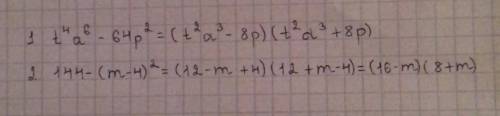 1 t⁴a⁶ - 64p² = (t²a³ - 8p)(t²a³ + 8p)
2 144 - (m - 4)² = (12 - m + 4)(12 + m - 4) = (16 - m)(8 + m)